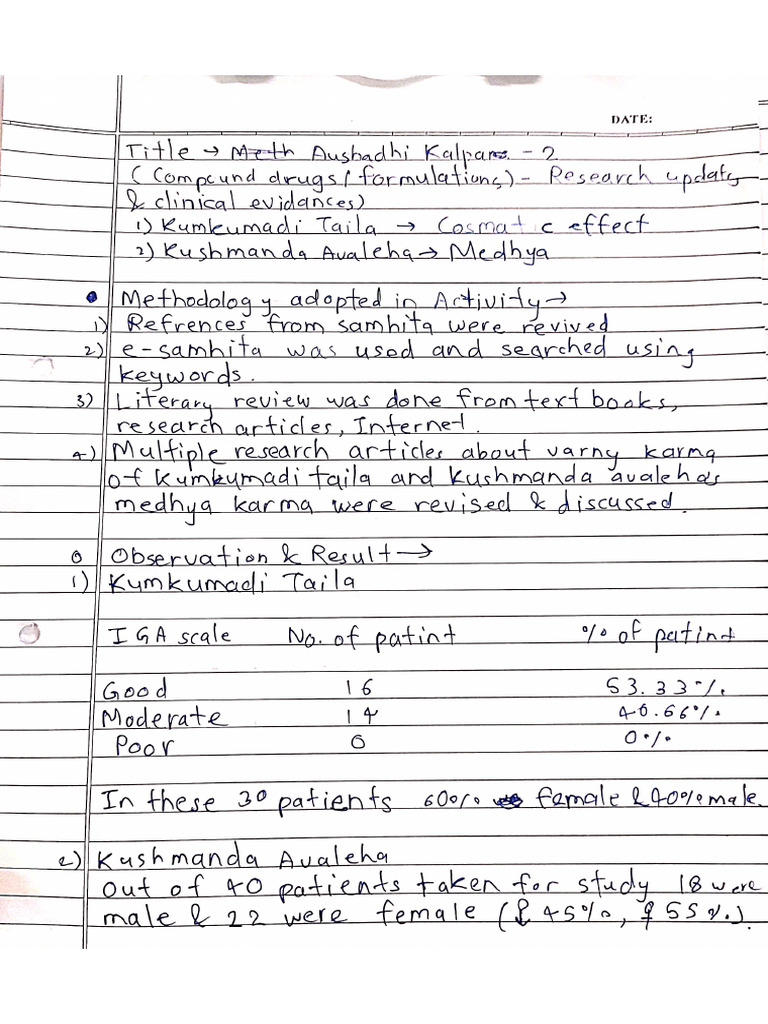 DATE:
Title → Aushadhi Kalpana - 2
(Compound drugs/formulations) - Research update
& clinical evidances)
1) Kumkumadi Taila → Cosmatic effect
2) Kushmanda Avaleha → Medhya
• Methodology adopted in Activity →
1) Refrences from samhita were revived
2) e-samhita was used and searched using
keywords.
3) Literary review was done from text books,
research articles, Internet.
4) Multiple research articles about varny karma
of Kumkumadi taila and Kushmanda avaleha's
medhya karma were revised & discussed.
o Observation & Result →
1) Kumkumadi Taila
IGA scale No. of patint % of patint
Good 16 53.33%
Moderate 14 46.66%
Poor 0 0%
In these 30 patients 60% female & 40% male.
2) Kushmanda Avaleha
Out of 40 patients taken for study 18 were
male & 22 were female (45%, 55%).